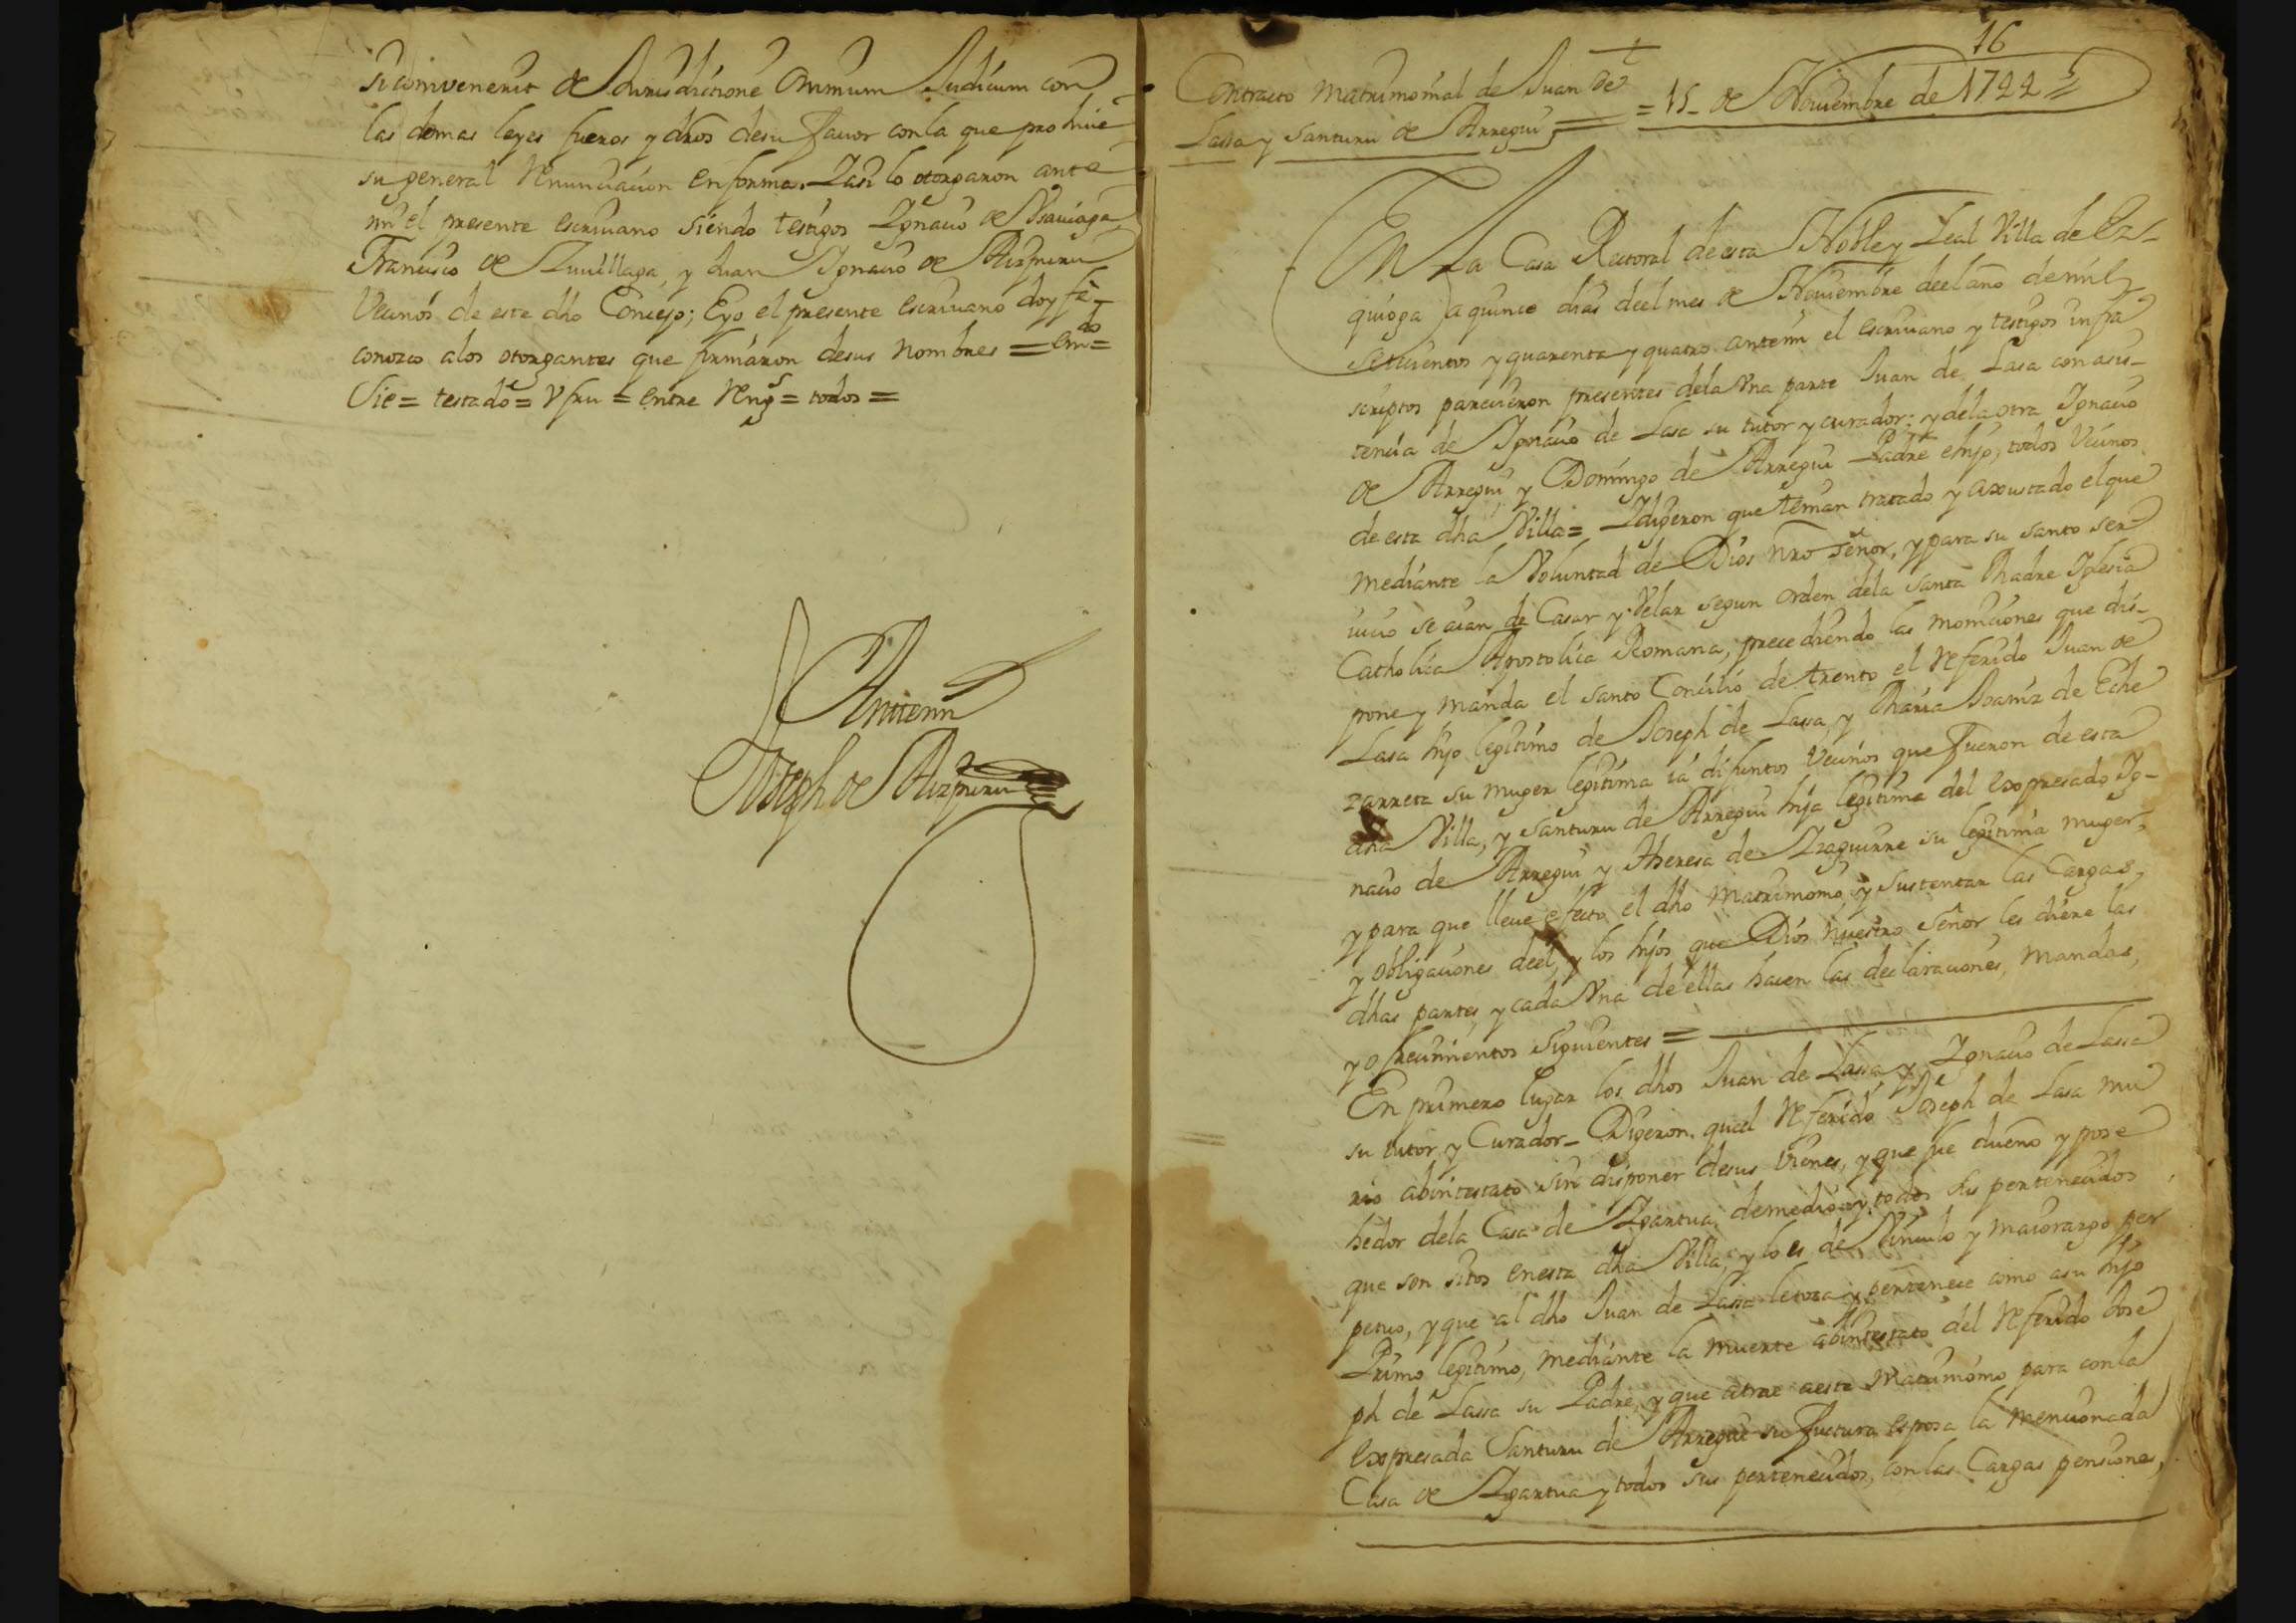 si convenerit de Jurisdictione Omnium Judicum con
las demas leyes fueros y dros desu favor conla que prohiue
su general Renunciacion en forma. Y asi lo otorgaron ante
mi el presente escriuano siendo testigos Ygnacio de
Francisco de Zuuillaga, y Juan Ygnacio de Aizpuru
Vecinos de este dho Concejo; Eyo el presente escriuano doy fè
conozco alos otorgantes que firmaron desus nombres = em.do =
Sie = testado = V fru = entre Reng.s = todos =
Antemi
Joseph de Aizpuru
16
Contracto Matrimonial de Juan de
Lassa y Santuru de Arregui = 15 de Nouiembre de 1744
En La Casa Rectoral de esta Noble y Leal Villa de Ez-
quioga a quince dias deel mes de Nouiembre deel año de mil
setecientos y quarenta y quatro antemi el escriuano y testigos infra
scriptos parecieron presentes dela Vna parte Juan de Lasa con asis-
tencia de Ygnacio de Lasa su tutor y curador; y dela otra Ygnacio
de Arregui, y Domingo de Arregui Padre ehijo, todos Vecinos
de esta dha Villa = Ydigeron que tenian tratado y axustado el que
mediante la Voluntad de Dios nro señor, y para su santo ser-
uicio se aian de Casar y Velar segun orden dela santa Madre Yglesia
Catholica Apostolica Romana, precediendo las moniciones que dis-
pone y manda el santo Concilio de trento el Referido Juan de
Lasa hijo legitimo de Joseph de Lassa, y Maria Joaniz de Eche
zarreta su muger legitima iá difuntos Vecinos que fueron de esta
dha Villa, y Santuru de Arregui hija legitima del expresado Yg-
nacio de Arregui y Theresa de Yzaguirre su legitima muger,
y para que lleue efecto el dho Matrimonio, y sustentar las Cargas,
y obligaciones deel, y los hijos que Dios nuestro señor les diere las
dhas partes, y cada Vna de ellas hacen las declaraciones, mandas,
y ofrecimientos siguientes =
En primero lugar los dhos Juan de Lassa, y Ygnacio de Lassa
su tutor y Curador - Digeron. qu el Referido Joseph de Lasa mu
rio abintestato sin disponer desus vienes, y que fue dueño y pose
hedor dela Casa de Ygartua, demedio y todos sus pertenecidos
que son sitos enesta dha Villa, y lo es de Vinculo y maiorazgo per
petuo, y que al dho Juan de Lassa letoca y pertenece como asu hijo
Primo legitimo, mediante la muerte abintestato del Referido Jose
ph de Lassa su Padre, y que atrae aeste Matrimonio para conla
expresada Santuru de Arregui su fuctura esposa la mencionada
Casa de Ygartua y todos sus pertenecidos, con las Cargas pensiones,